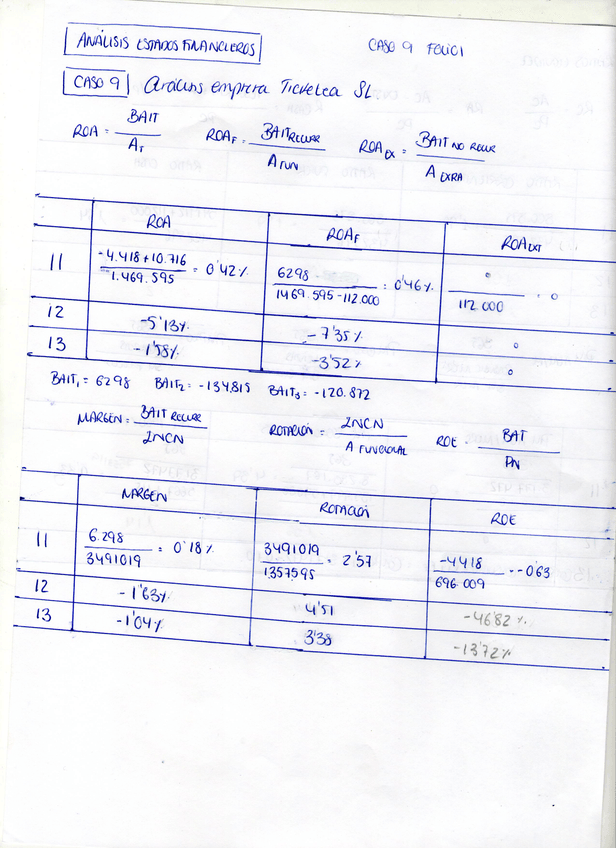 ANÁLISIS ESTADOS FINANCIEROS
CASO 9 FOLIO 1
CASO 9 Análisis empresa Ticketea SL
ROA = BAIT / AT ROAF = BAIT RECURR / A FUN ROA EX = BAIT NO RECUR / A EXTRA
ROA ROAF ROA EXT
11 -4.418+10.716 / 1.469.595 = 0'42% 6298 / 1469.595-112.000 = 0'46% 0 / 112.000 = 0
12 -5'13% -7'35% 0
13 -1'58% -3'52% 0
BAIT1 = 6298 BAIT2 = -134.815 BAIT3 = -120.872
MARGEN = BAIT RECURR / INCN ROTACIÓN = INCN / A FUNCIONAL ROE = BAT / PN
MARGEN ROTACIÓN ROE
11 6.298 / 3491019 = 0'18% 3491019 / 1357595 = 2'57 -4418 / 696.009 = -0'63
12 -1'63% 4'51 -46'82%
13 -1'04% 3'38 -13'72%